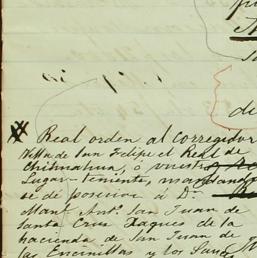 de
Real orden al corregidor
Villa de San Felipe el Real de
Chihuahua, o vuestro
Lugar-teniente, mandando
se de posesion á Dn
Manl Anto San Juan de
Santa Cruz Jaques de la
hacienda de San Juan de
las Encinillas y los